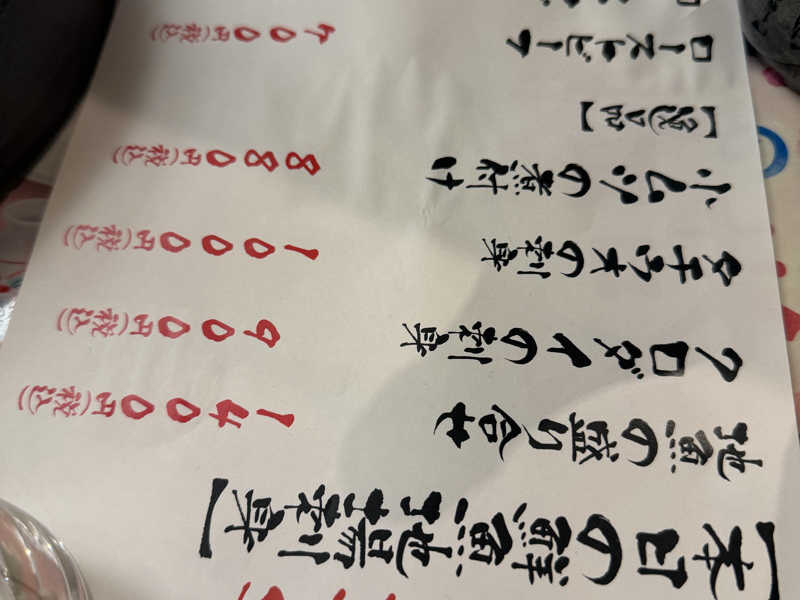 【本日の鮮魚
地魚の盛り合せ 1400円(税込)
クロダイの刺身 900円(税込)
タチウオの刺身 1000円(税込)
小ムツの煮付け 880円(税込)
【逸品】
ローストビーフ 700円(税込)